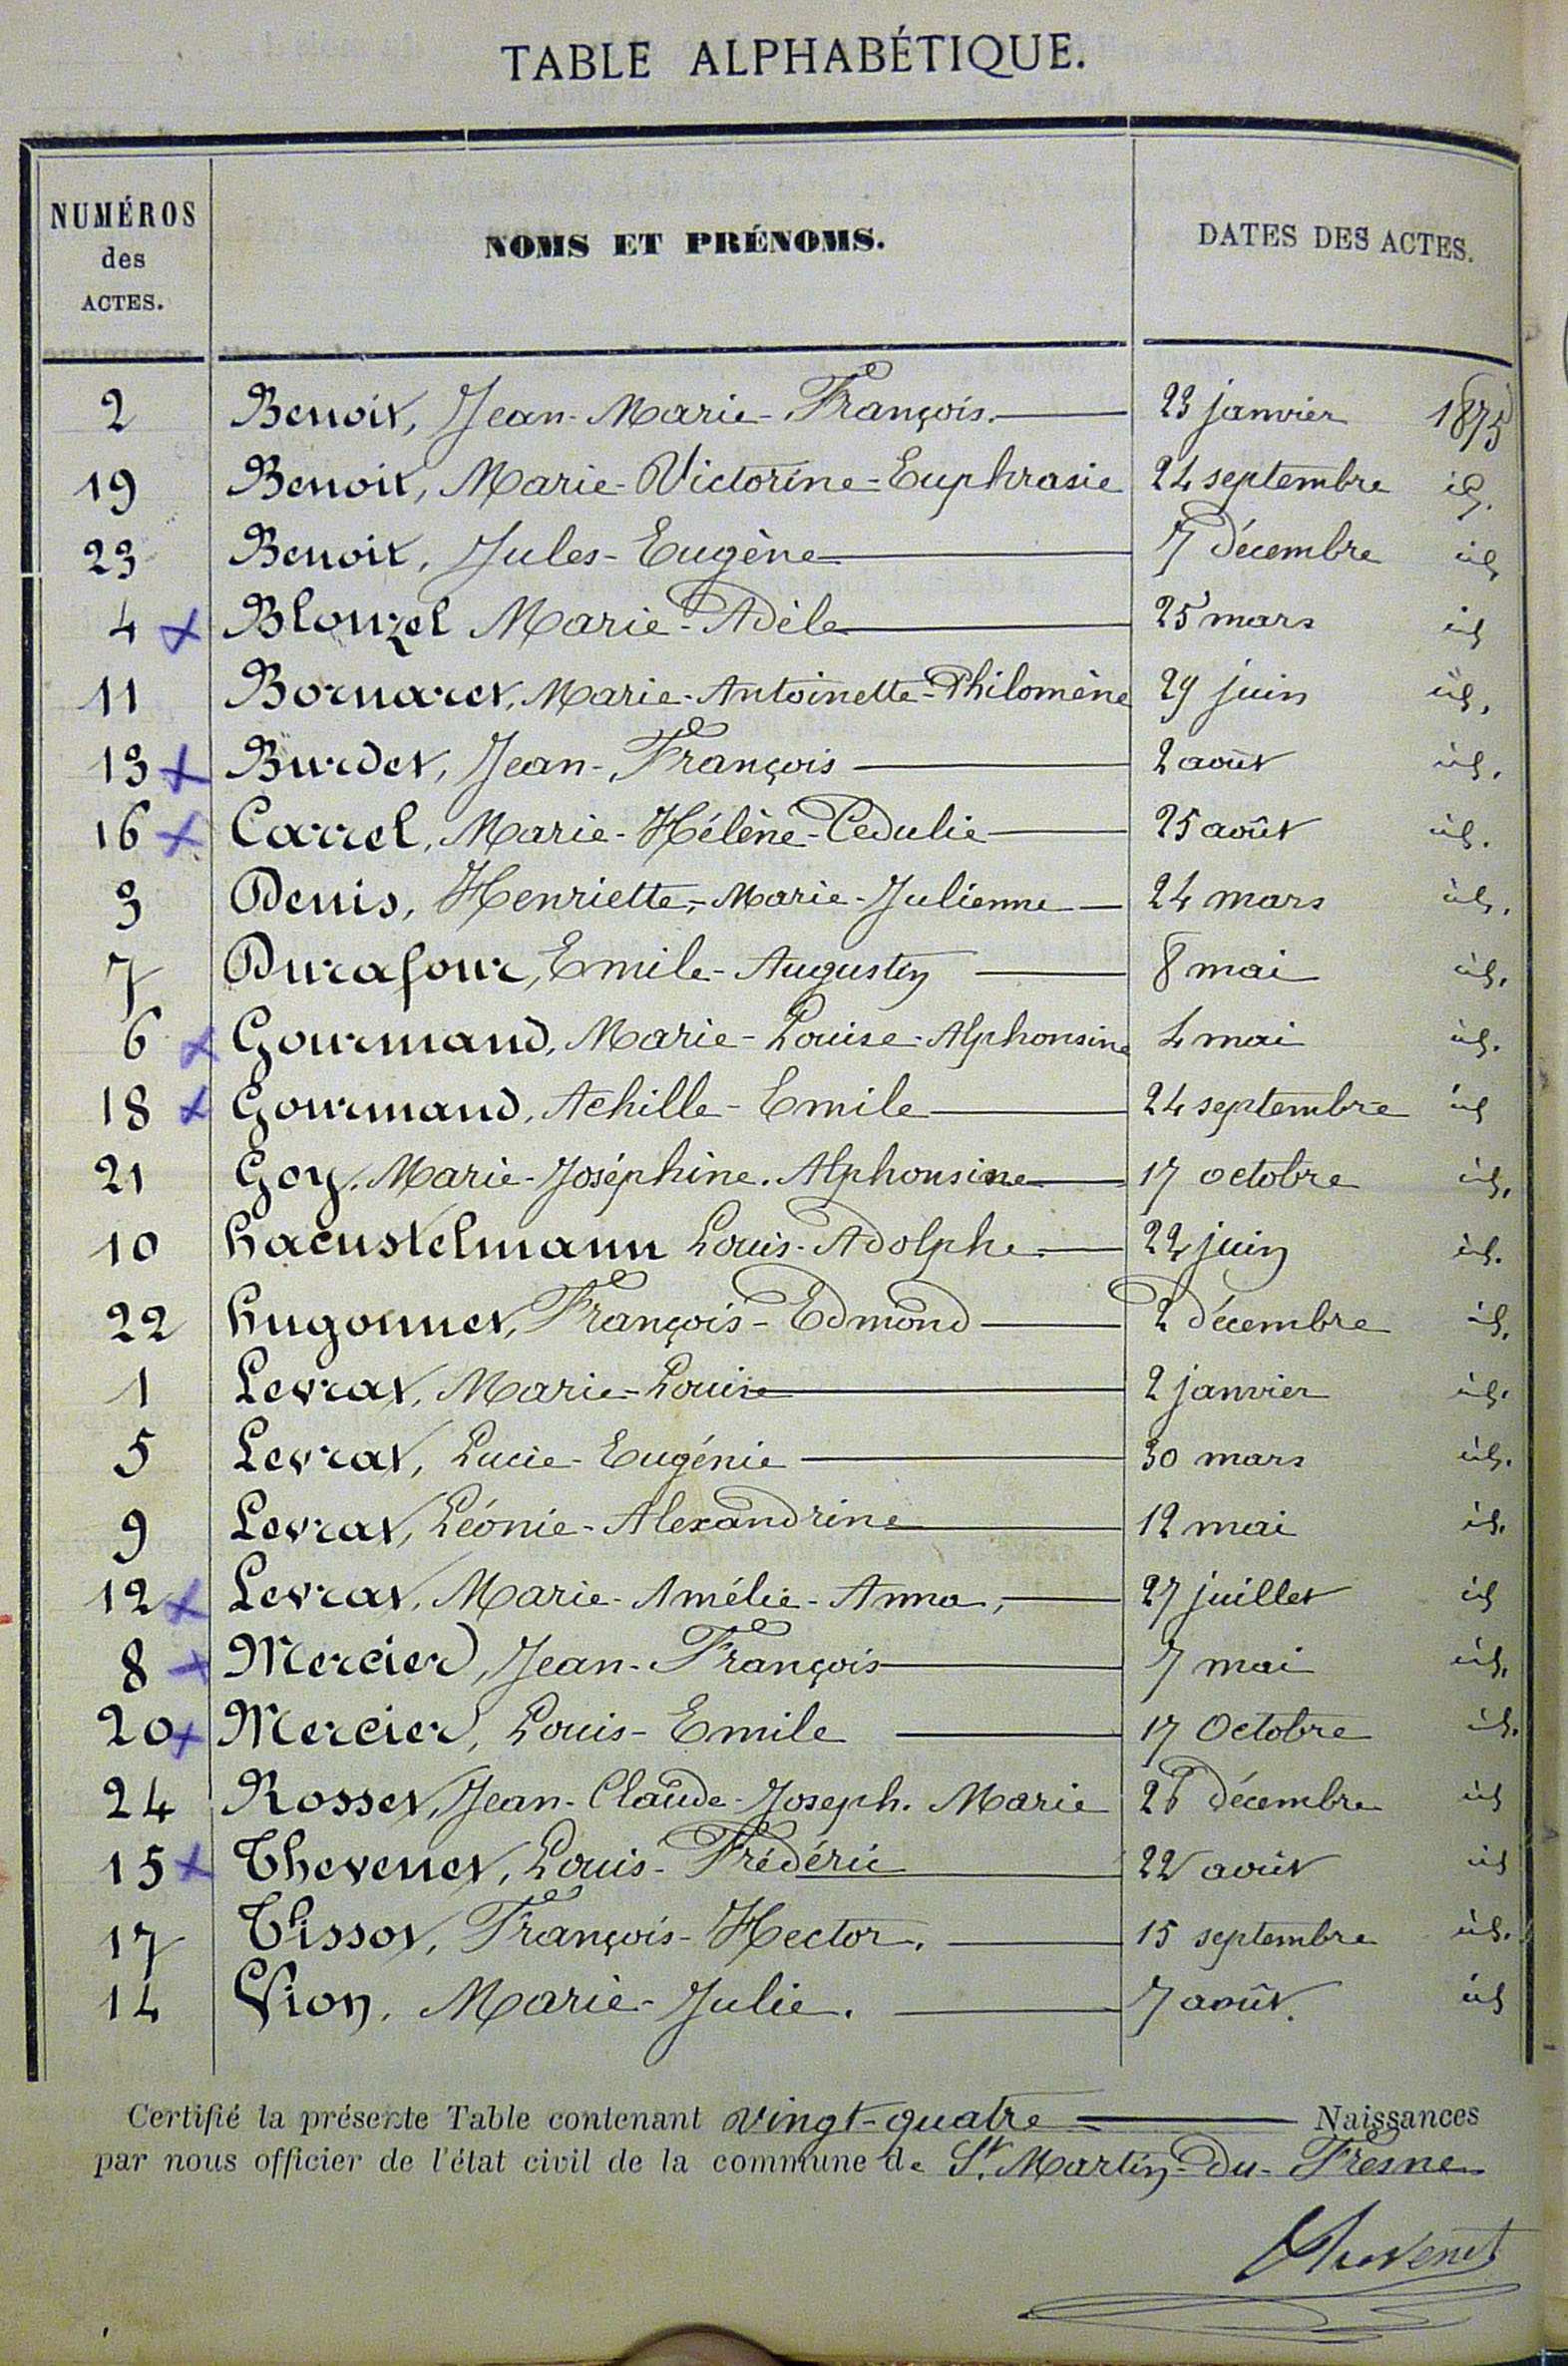 TABLE ALPHABÉTIQUE.
NUMÉROS des ACTES. NOMS ET PRÉNOMS. DATES DES ACTES.
2 Benoit, Jean-Marie-François. 23 janvier 1875
19 Benoit, Marie-Victorine-Euphrasie 24 septembre id.
23 Benoit, Jules-Eugène 7 décembre id
4 x Blonzel Marie-Adèle 25 mars id
11 Bornaret, Marie-Antoinette-Philomène 29 juin id.
13 x Burdet, Jean-François 2 août id.
16 x Carrel, Marie-Hélène-Cedulie 25 août id.
3 Denis, Henriette-Marie-Julienne 24 mars id.
7 Durafour, Emile-Augustin 8 mai id.
6 x Gourmand, Marie-Louise-Alphonsine 4 mai id.
18 x Gourmand, Achille-Emile 24 septembre id
21 Goy. Marie-Joséphine. Alphonsine 17 octobre id.
10 hacustelmann Louis-Adolphe 22 juin id.
22 hugonnet, François-Edmond 2 décembre id.
1 Levrat, Marie-Louise 2 janvier id.
5 Levrat, Lucie-Eugénie 30 mars id.
9 Levrat, Léonie-Alexandrine 12 mai id.
12 x Levrat, Marie-Amélie-Anna, 27 juillet id
8 x Mercier, Jean-François 7 mai id.
20 x Mercier, Louis-Emile 17 Octobre id.
24 Rosset, Jean-Claude-Joseph. Marie décembre id
15 x Thevenet, Louis-Frédéric 22 août id
17 Tissot, François-Hector. 15 septembre id.
14 Vion, Marie-Julie. 7 août. id
Certifié la présente Table contenant vingt-quatre Naissances
par nous officier de l'état civil de la commune de St. Martin-du-Fresne
Thevenet